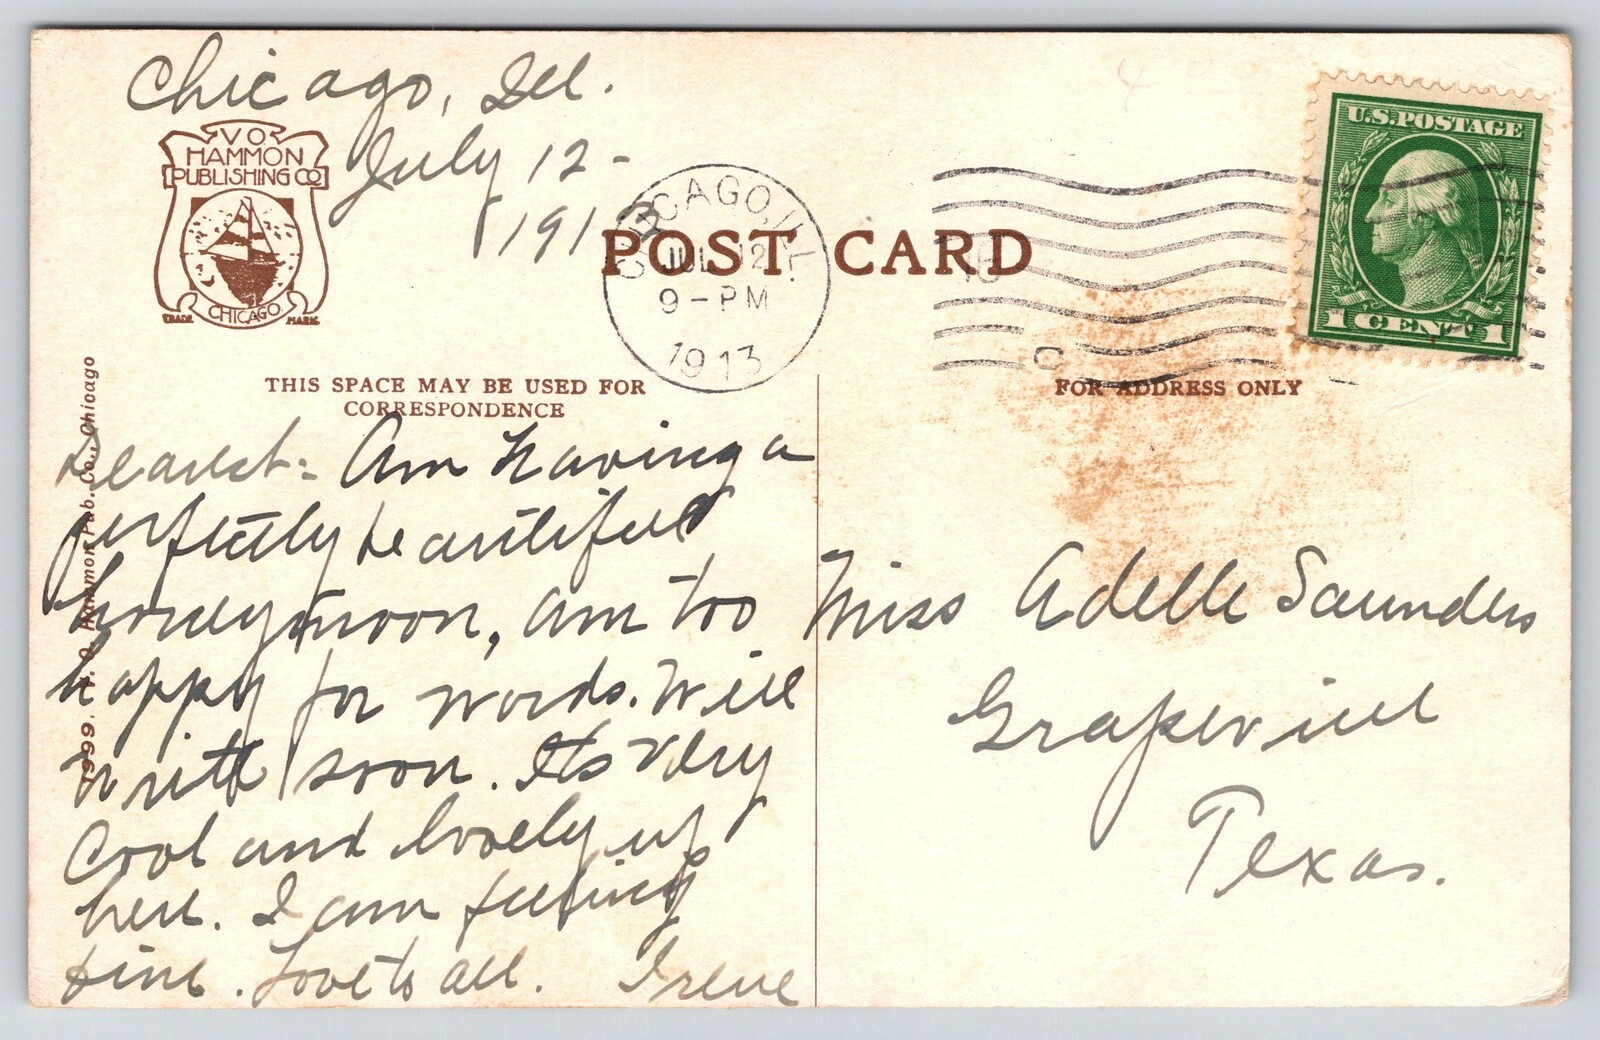 Chicago, Ill.
July 12-
1913
V.O.
HAMMON
PUBLISHING CO
CHICAGO
TRADE MARK
POST CARD
CHICAGO, ILL.
JUL 12
9-PM
1913
U.S. POSTAGE
1 CENT 1
THIS SPACE MAY BE USED FOR
CORRESPONDENCE
FOR ADDRESS ONLY
1999. V. O. Hammon Pub. Co., Chicago
Dearest:- Am having a
perfectly beautiful
honeymoon, am too
happy for words. Will
write soon. Its very
cool and lovely up
here. I am feeling
fine. Love to all. Irene
Miss Adelle Saunders
Grapevine
Texas.